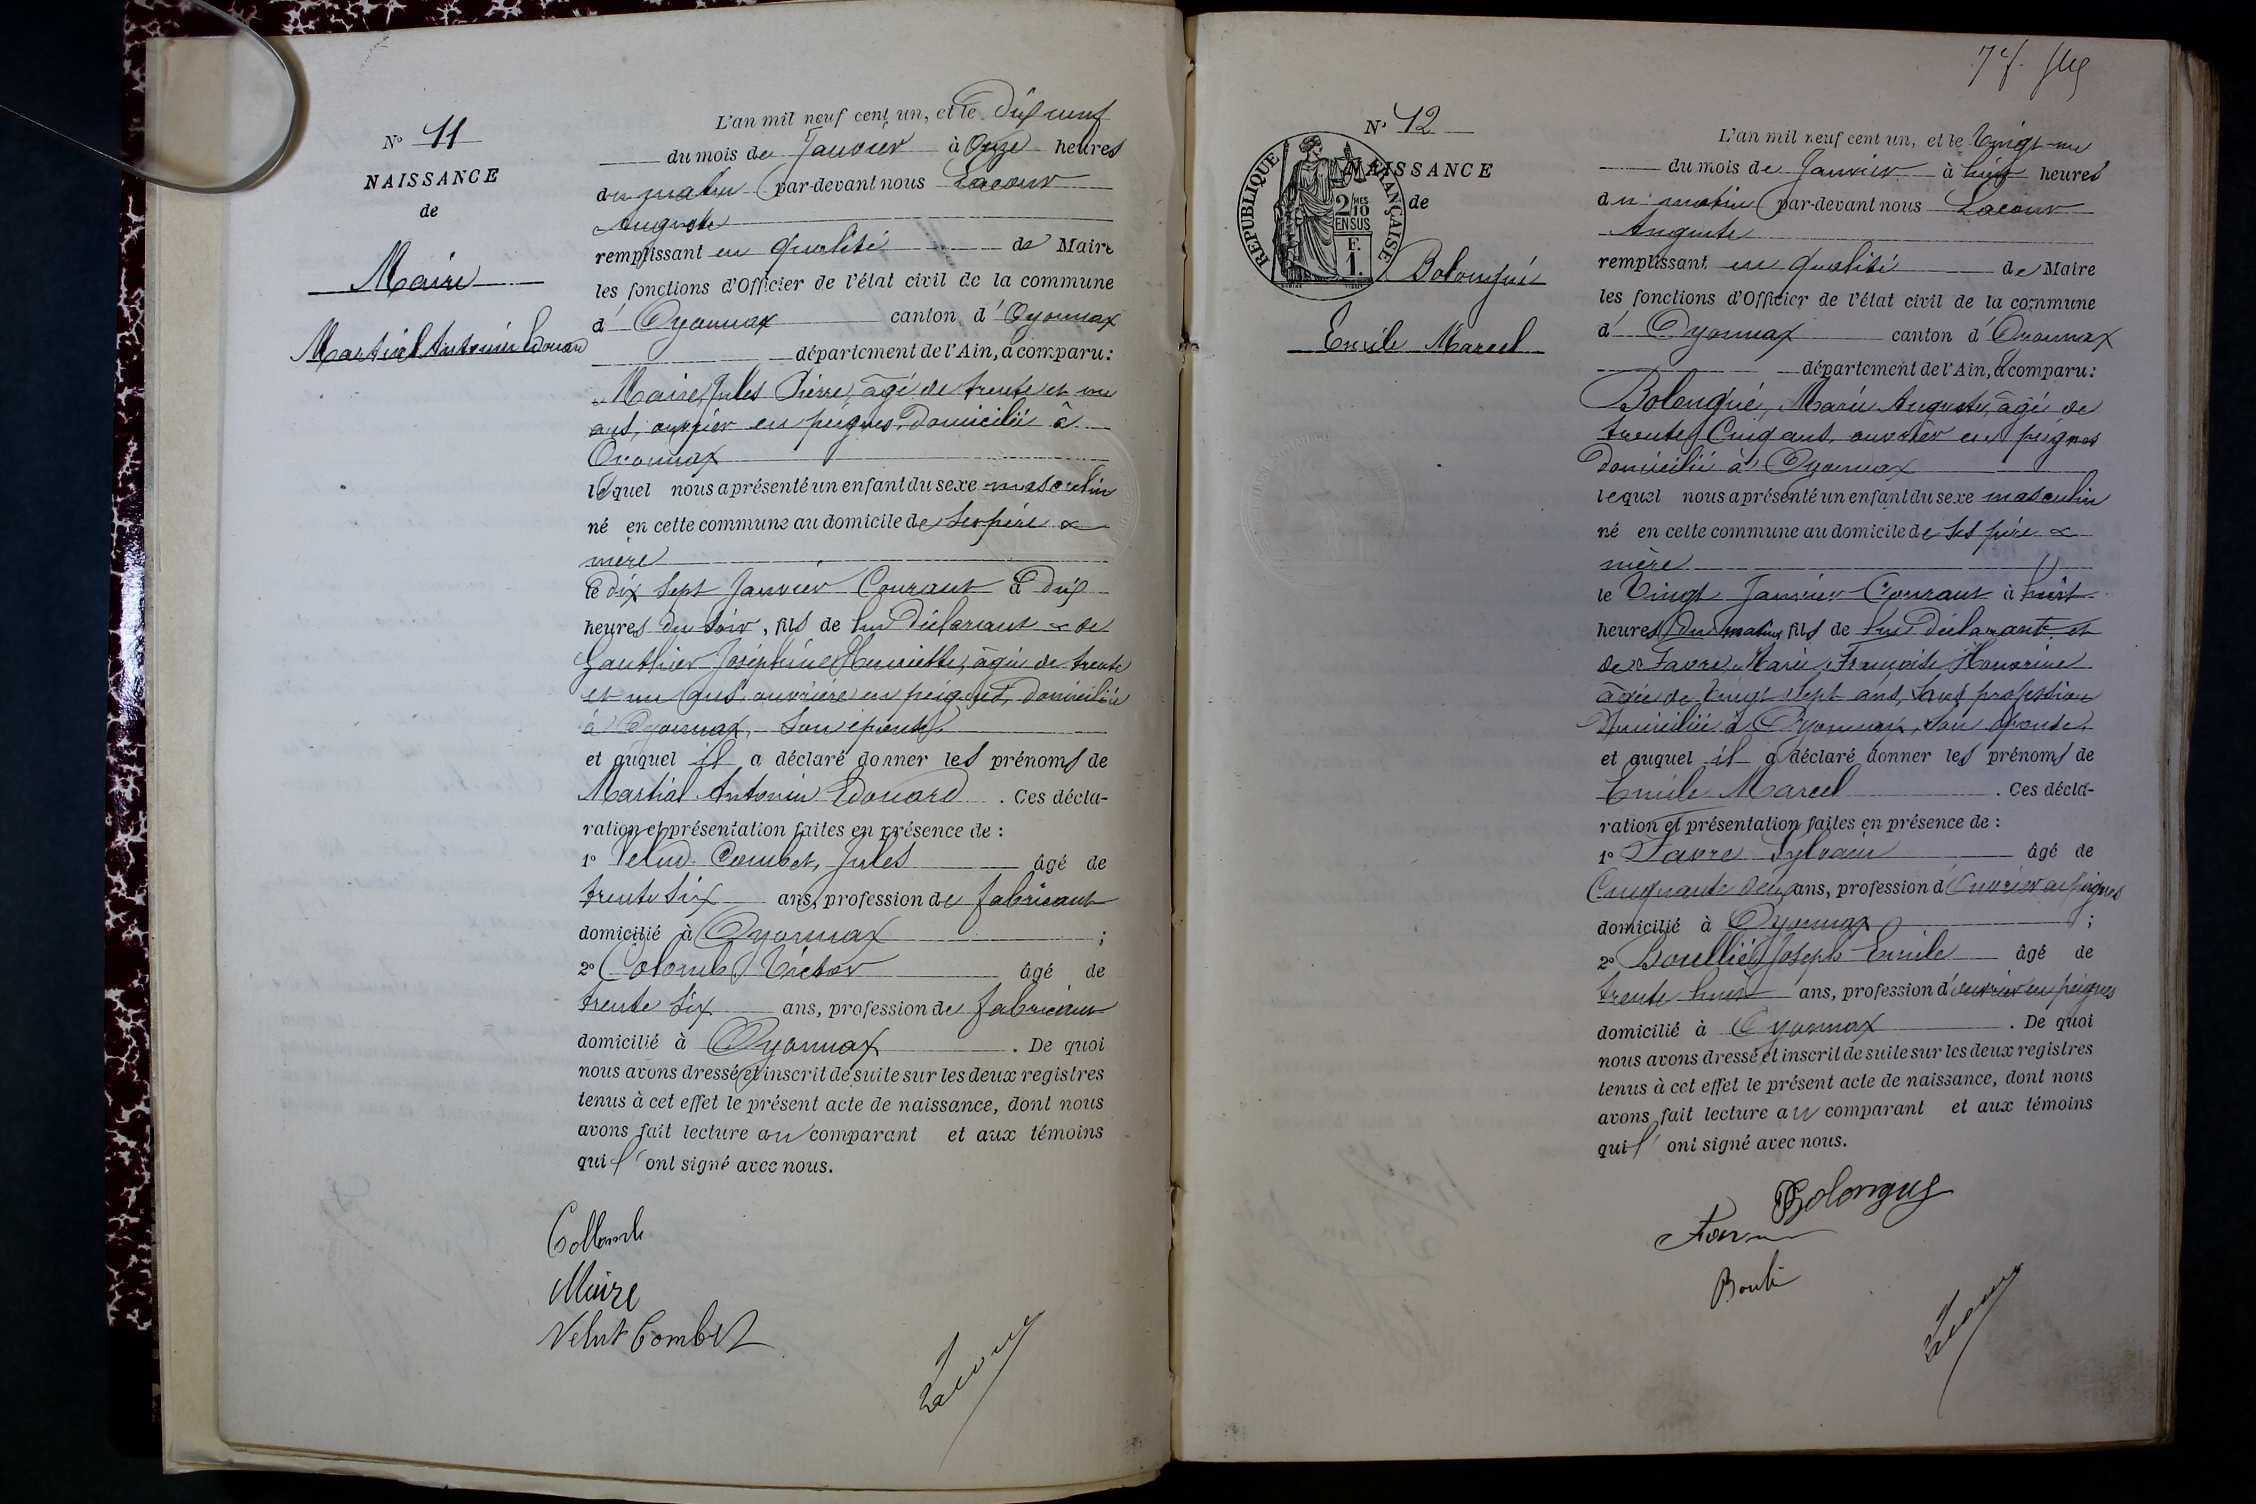 Nº 11
NAISSANCE
de
Maire
Martial Antonin Edouard
L'an mil neuf cent un, et le Dix neuf
du mois de Janvier à Onze heures
du matin par-devant nous Lacour
Auguste
remplissant en qualité de Maire
les fonctions d'Officier de l'état civil de la commune
d' Oyonnax canton d' Oyonnax
département de l'Ain, a comparu:
Maire, Jules Pierre, âgé de trente et un
ans, ouvrier en peignes, domicilié à
Oyonnax
lequel nous a présenté un enfant du sexe masculin
né en cette commune au domicile de ses père &
mère
le dix sept Janvier Courant à Dix
heures du soir, fils de lui Déclarant & de
Gauthier Joséphine Henriette, âgée de trente
et un ans, ouvrière en peignes, domiciliée
à Oyonnax, son épouse
et auquel il a déclaré donner les prénoms de
Martial Antonin Edouard. Ces décla-
ration et présentation faites en présence de :
1º Velud Combet, Jules âgé de
trente six ans, profession de fabricant
domicilié à Oyonnax ;
2º Colomb Victor âgé de
trente six ans, profession de fabricant
domicilié à Oyonnax . De quoi
nous avons dressé et inscrit de suite sur les deux registres
tenus à cet effet le présent acte de naissance, dont nous
avons fait lecture au comparant et aux témoins
qui l'ont signé avec nous.
Collomb
Maire
Velut Combet
Lacour
7 f.
Nº 12
NAISSANCE
de
REPUBLIQUE FRANÇAISE
2 MES
10
EN SUS
F.
1.
Bolongué
Emile Marcel
L'an mil neuf cent un, et le Vingt-un
du mois de Janvier à huit heures
du matin par-devant nous Lacour
Auguste
remplissant en qualité de Maire
les fonctions d'Officier de l'état civil de la commune
d' Oyonnax canton d' Oyonnax
département de l'Ain, a comparu:
Bolongué, Marie Auguste, âgé de
trente Cinq ans, ouvrier en peignes
domicilié à Oyonnax
lequel nous a présenté un enfant du sexe masculin
né en cette commune au domicile de ses père &
mère
le Vingt Janvier Courant à huit
heures du matin, fils de lui Déclarant et
de Favre, Marie Françoise Honorine
âgée de Vingt sept ans, sans profession
Domiciliée à Oyonnax, son épouse.
et auquel il a déclaré donner les prénoms de
Emile Marcel . Ces décla-
ration et présentation faites en présence de :
1º Favre Sylvain âgé de
Cinquante deux ans, profession d'Ouvrier en peignes
domicilié à Oyonnax ;
2º Boullié Joseph Emile âgé de
trente huit ans, profession d'ouvrier en peignes
domicilié à Oyonnax . De quoi
nous avons dressé et inscrit de suite sur les deux registres
tenus à cet effet le présent acte de naissance, dont nous
avons fait lecture au comparant et aux témoins
qui l' ont signé avec nous.
Bolongué
Favre
Lacour